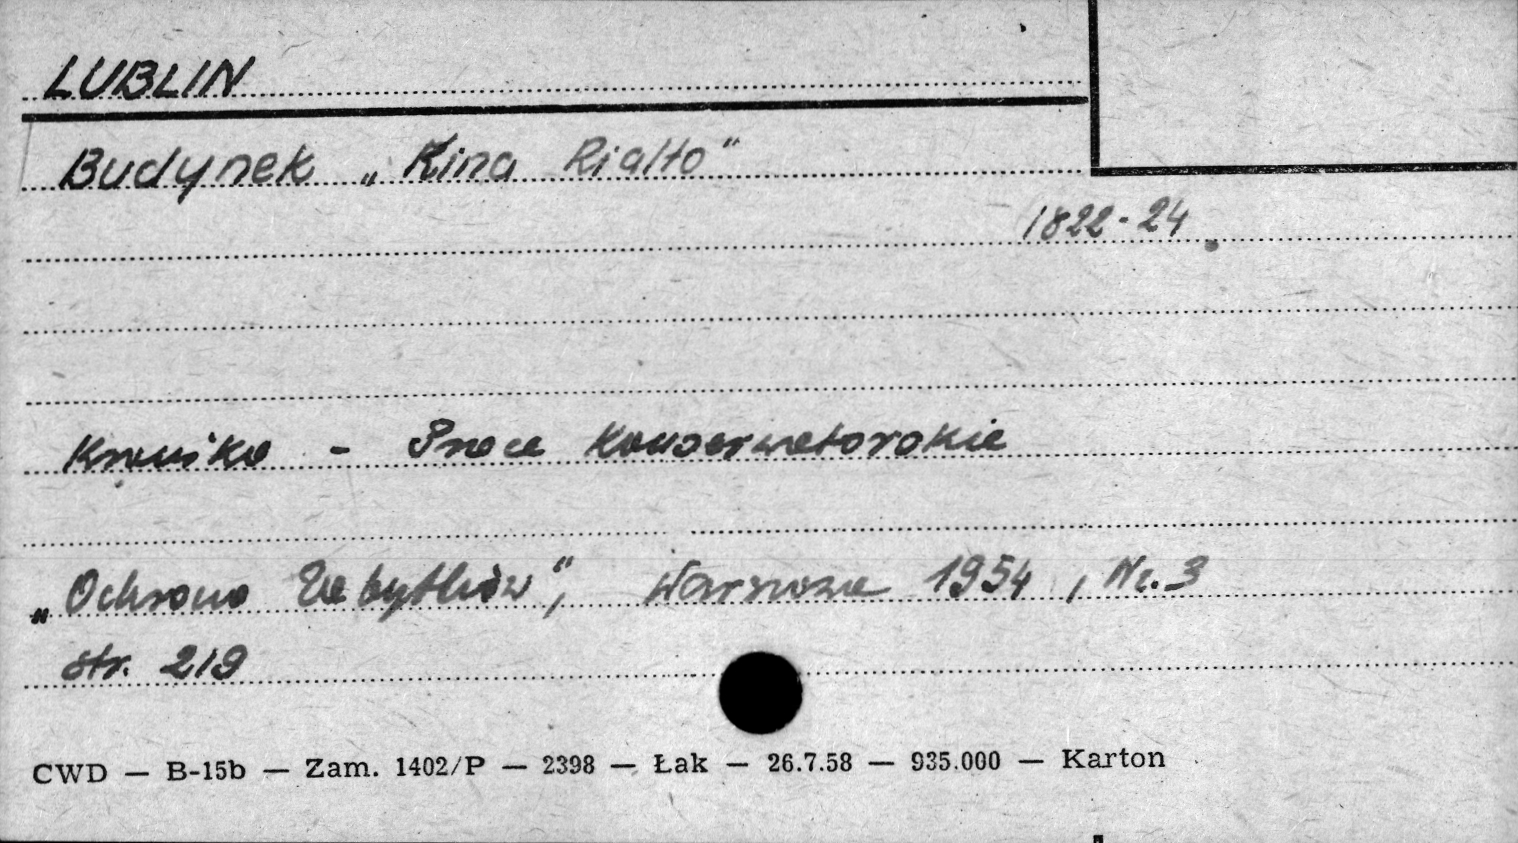 LUBLIN
Budynek „Kina Rialto"
1822-24
Kronika - Prace Konserwatorskie
„Ochrona Zabytków", Warszawa 1954, Nr. 3
str. 219
CWD — B-15b — Zam. 1402/P — 2398 — Łak — 26.7.58 — 935.000 — Karton